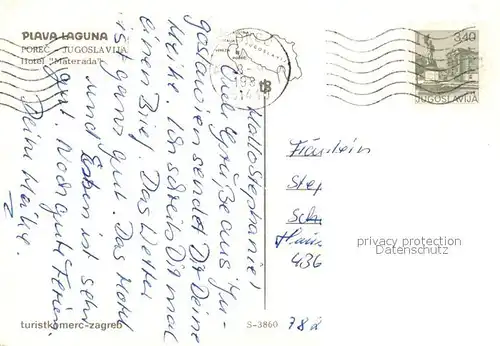 PLAVA LAGUNA
POREČ - JUGOSLAVIJA
Hotel "Materada"
3,40
JUGOSLAVIJA
JUGOSLAVIJA
Hallo Stephanie!
Viele Grüße aus Ju-
goslawien sendet Dir Deine
Meike. Ich schreib Dir mal
einen Brief. Das Wetter
ist ganz gut. Das Hotel
und Essen ist sehr
gut. Noch gute Ferien.
Deine Meike.
Fräulein
Step
Sch
436
privacy protection
Datenschutz
turistkomerc-zagreb
S-3860
782